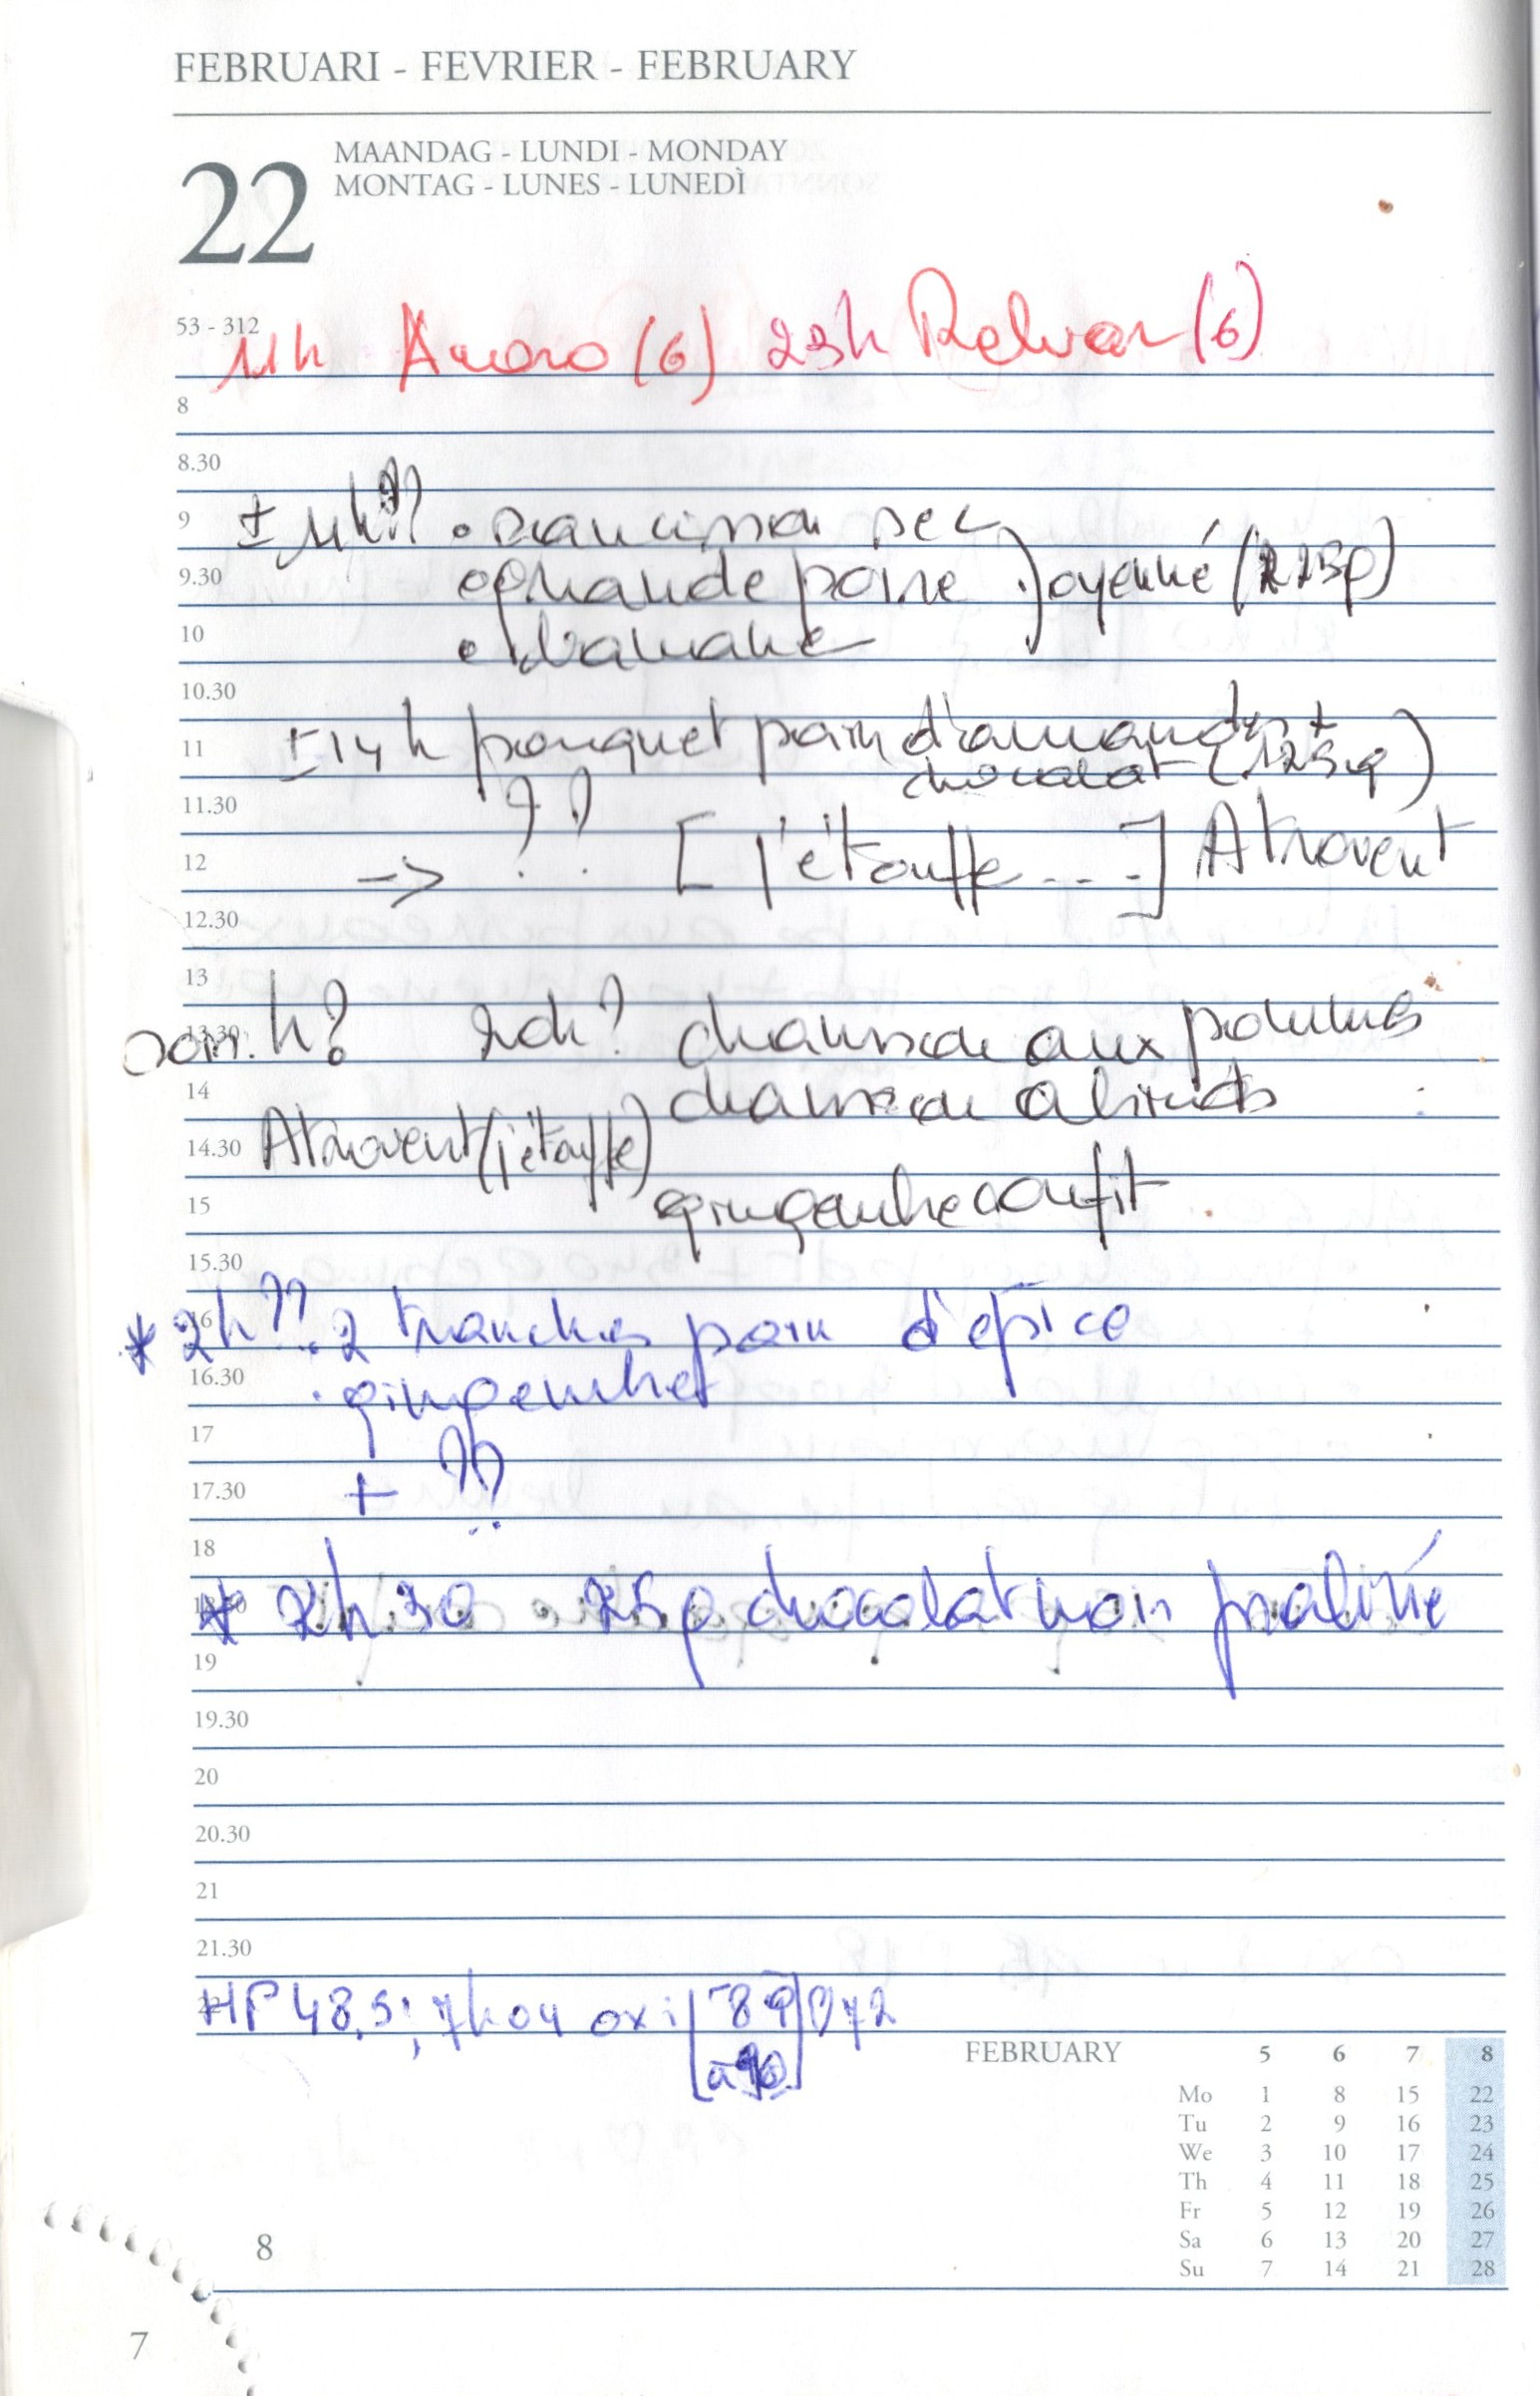 FEBRUARI - FEVRIER - FEBRUARY
22
MAANDAG - LUNDI - MONDAY
MONTAG - LUNES - LUNEDÌ
53 - 312
11h (6) 23h Relvar (6)
8
8.30
9
± 11h?? • saucisson sec
9.30
• poire
10
• banane
10.30
11
± 14h paquet pain d'amandes +
chocolat (125g)
11.30
12
-> ?? [j'étouffe...] Atrovent
12.30
13
13.30
soir. h? 20h? chausson aux pommes
14
chausson abricots
14.30
Atrovent (j'étouffe)
15
gingembre confit
15.30
16
* 2h??. 2 tranches pain d'épice
16.30
. gingembre
17
17.30
+ ??
18
18.30
* 2h30 25g chocolat noir praliné
19
19.30
20
20.30
21
21.30
22
HP 48,5; 7h04 oxi [89] 72
[à 90]
FEBRUARY 5 6 7 8
Mo 1 8 15 22
Tu 2 9 16 23
We 3 10 17 24
Th 4 11 18 25
Fr 5 12 19 26
Sa 6 13 20 27
Su 7 14 21 28
8
7